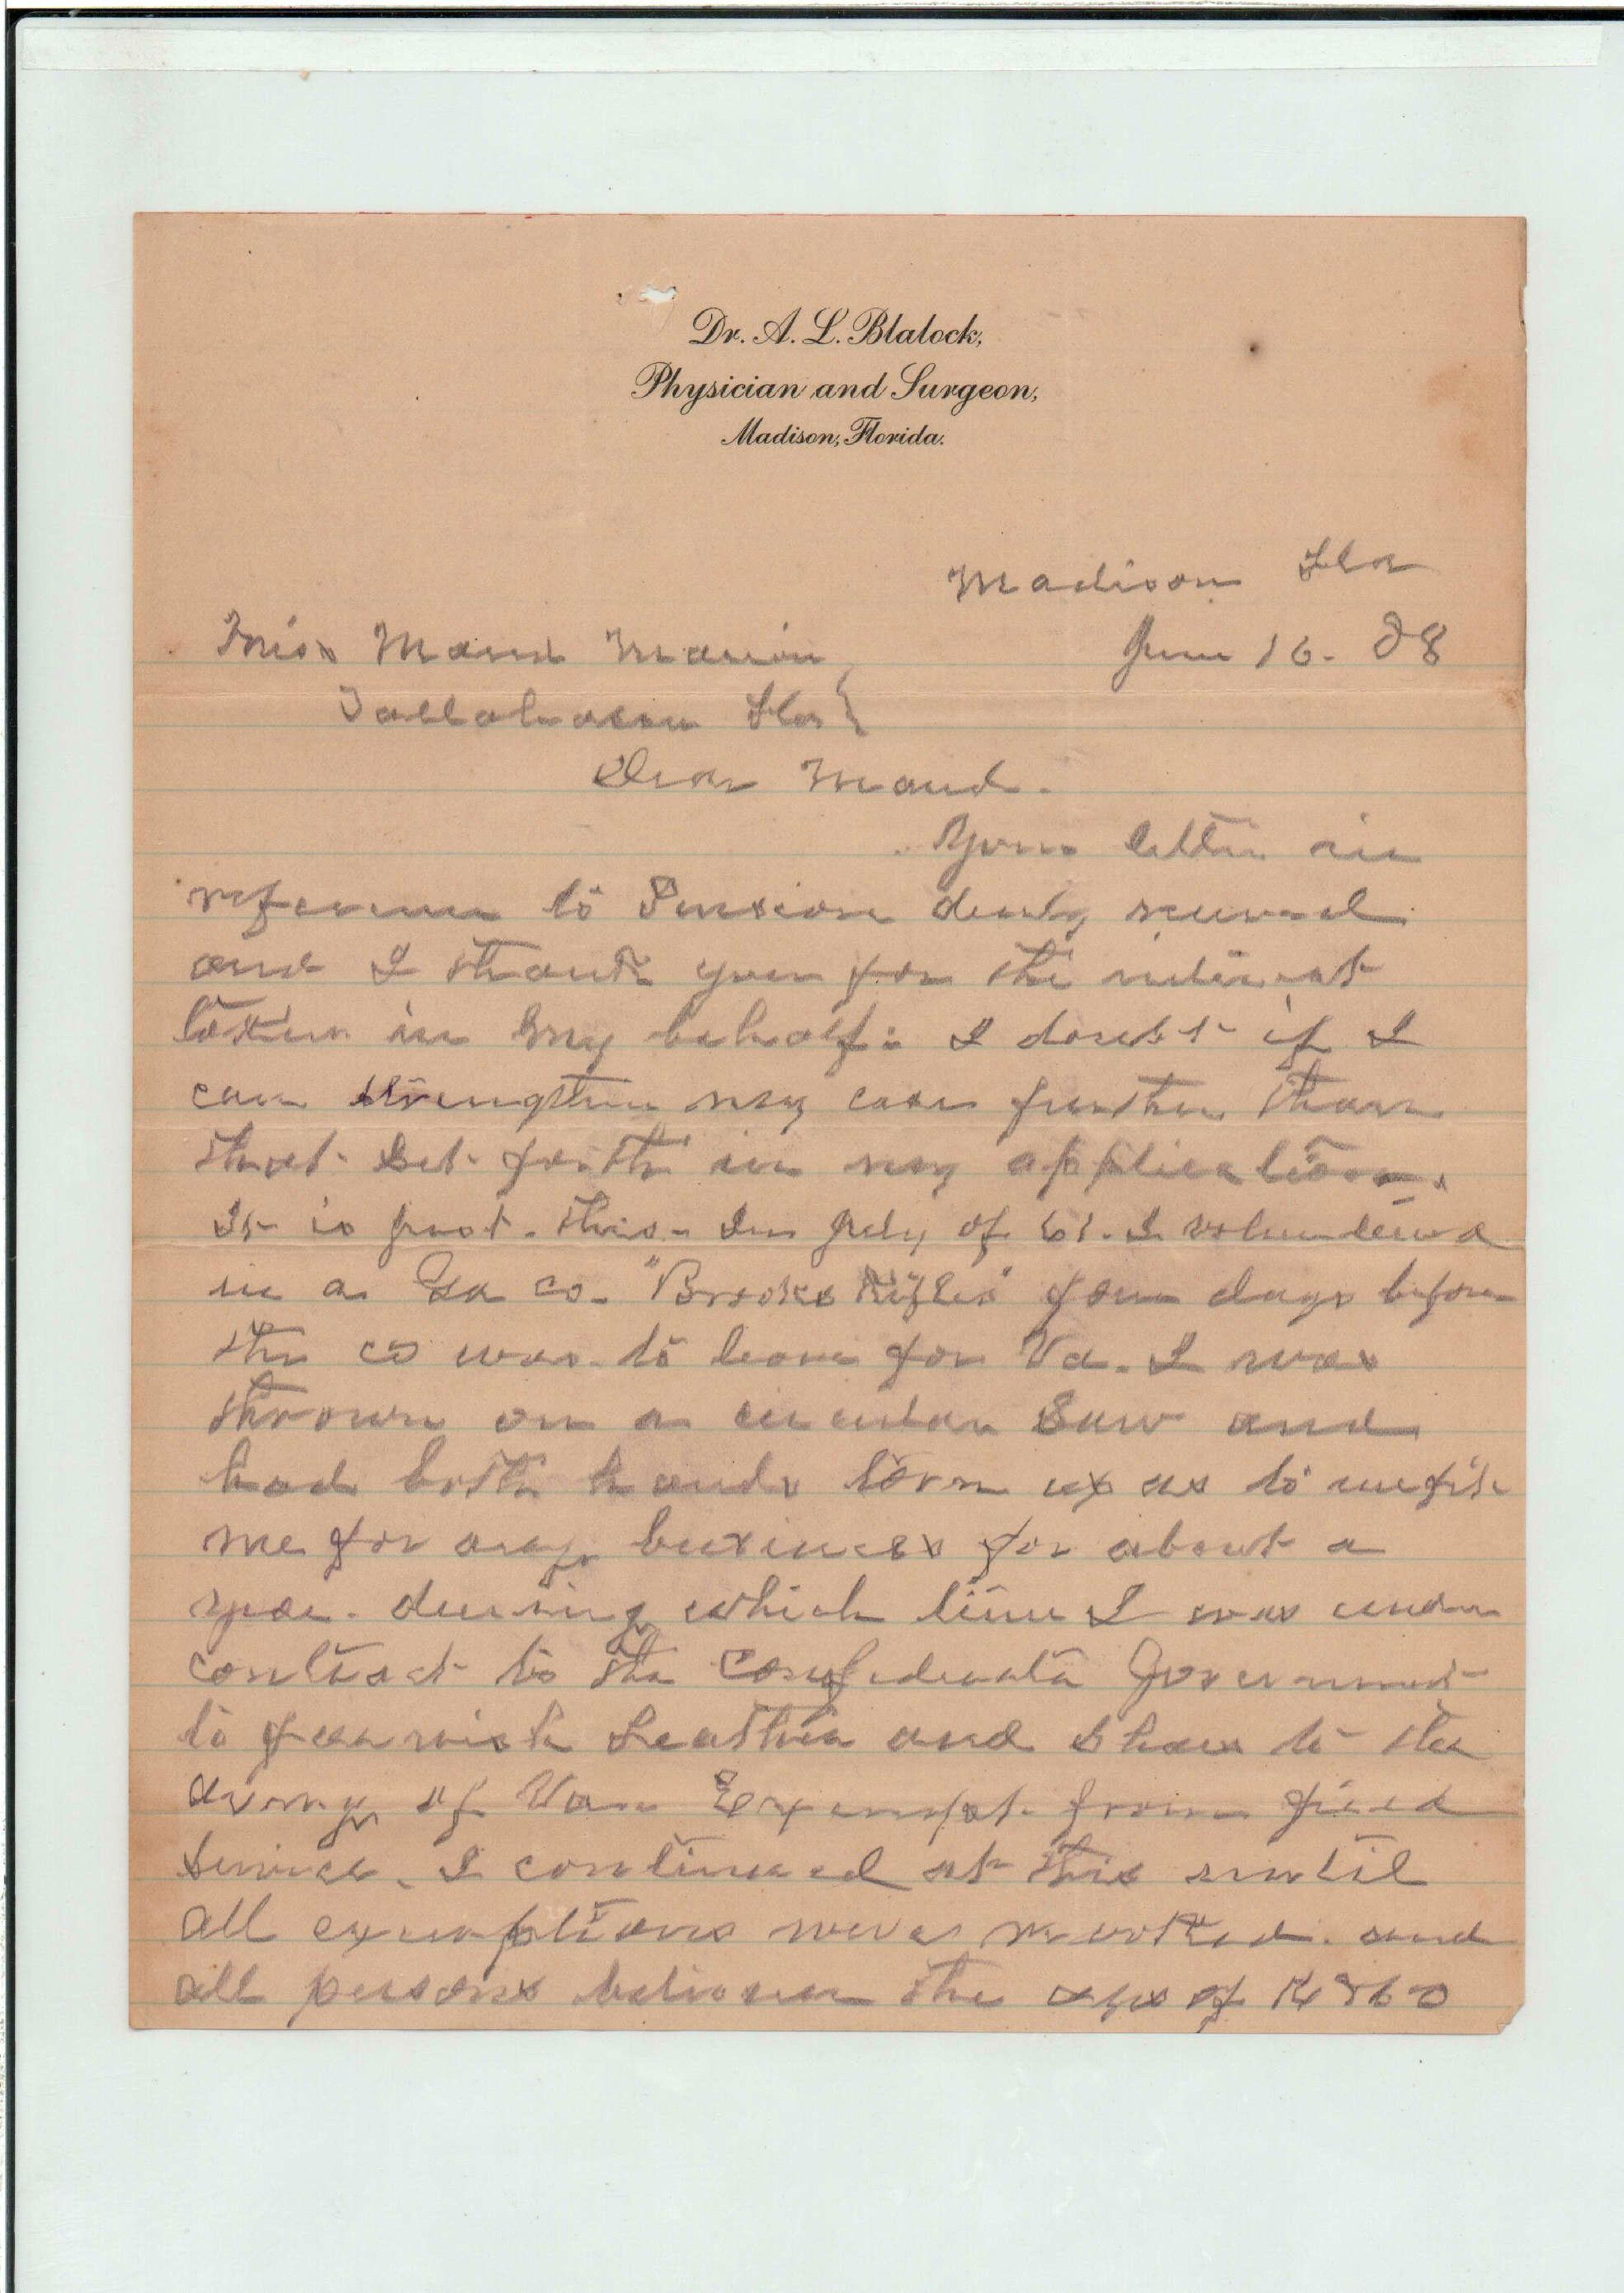 Dr. A. L. Blalock,
Physician and Surgeon,
Madison, Florida.
Madison Fla
Miss Maud June 16. 08
Tallahassee Fla
Dear Maud.
Your letter in
reference to Pension duly received
and I thank you for the interest
taken in my behalf. I doubt if I
can strengthen my case further than
that set forth in my application.
It is just this - In July of 61. I volunteered
in a Ga Co. "Brooks Rifles" four days before
the co was to leave for Va. I was
thrown on a circular Saw and
had both hands torn up as to unfit
me for any business for about a
year. during which time I was under
contract to the Confederate Government
to furnish Leather and Shoes to the
army of Va. Exempt from field
Service. I continued at this until
all exemptions were revoked. and
all persons between the ages of &60